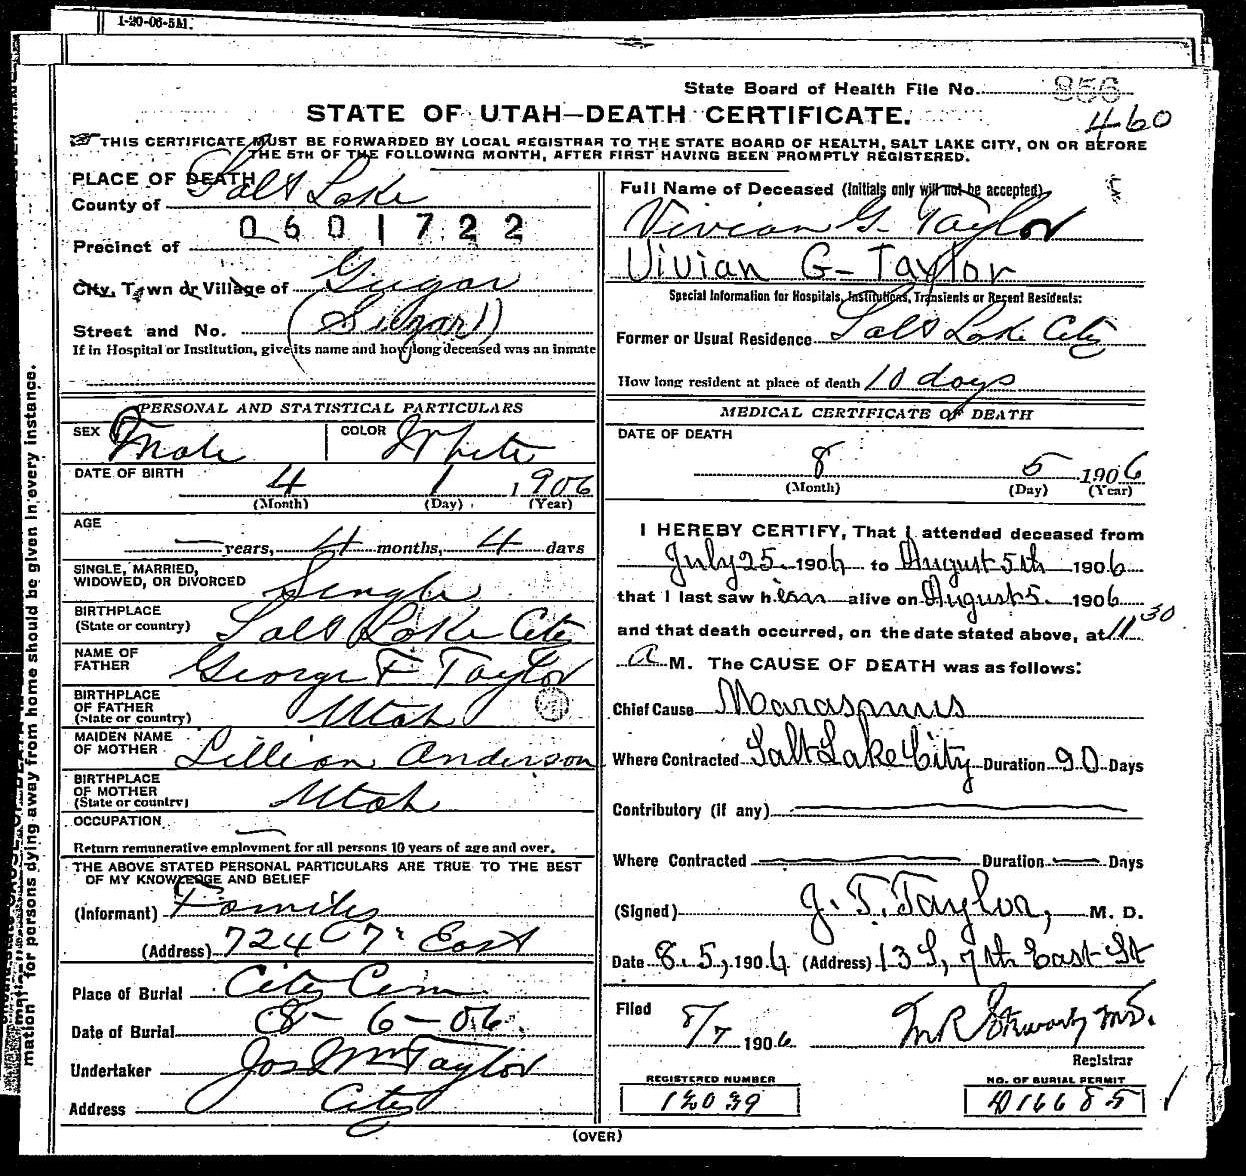 1-20-06-5M.
State Board of Health File No. 856
460
STATE OF UTAH—DEATH CERTIFICATE.
THIS CERTIFICATE MUST BE FORWARDED BY LOCAL REGISTRAR TO THE STATE BOARD OF HEALTH, SALT LAKE CITY, ON OR BEFORE
THE 5TH OF THE FOLLOWING MONTH, AFTER FIRST HAVING BEEN PROMPTLY REGISTERED.
PLACE OF DEATH
County of Salt Lake
0601722
Precinct of
City, Town or Village of Sugar
Street and No. (Sugar)
If in Hospital or Institution, give its name and how long deceased was an inmate
PERSONAL AND STATISTICAL PARTICULARS
SEX Male COLOR White
DATE OF BIRTH 4 1 1906
(Month) (Day) (Year)
AGE
— years, 4 months, 4 days
SINGLE, MARRIED,
WIDOWED, OR DIVORCED Single
BIRTHPLACE
(State or country) Salt Lake City
NAME OF
FATHER George F Taylor
BIRTHPLACE
OF FATHER
(State or country) Utah
MAIDEN NAME
OF MOTHER Lillian Anderson
BIRTHPLACE
OF MOTHER
(State or country) Utah
OCCUPATION —
Return remunerative employment for all persons 10 years of age and over.
THE ABOVE STATED PERSONAL PARTICULARS ARE TRUE TO THE BEST
OF MY KNOWLEDGE AND BELIEF
(Informant) Family
(Address) 724 7 East
Place of Burial City Cem
Date of Burial 8-6-06
Undertaker Jos Wm Taylor
Address City
Full Name of Deceased (Initials only will not be accepted)
Vivian G. Taylor
Vivian G- Taylor
Special Information for Hospitals, Institutions, Transients or Recent Residents:
Former or Usual Residence Salt Lake City
How long resident at place of death 10 days
MEDICAL CERTIFICATE OF DEATH
DATE OF DEATH
8 5 1906
(Month) (Day) (Year)
I HEREBY CERTIFY, That I attended deceased from
July 25 1906 to August 5th 1906
that I last saw him alive on August 5 1906
and that death occurred, on the date stated above, at 11 30
A M. The CAUSE OF DEATH was as follows:
Chief Cause Marasmus
Where Contracted Salt Lake City Duration 90 Days
Contributory (if any)
Where Contracted Duration Days
(Signed) J. T. Taylor, M. D.
Date 8. 5, 1906 (Address) 13 S, 7th East St
Filed
8/7 1906 M R Stewart M.D.
Registrar
REGISTERED NUMBER
12039
NO. OF BURIAL PERMIT
D16685
(OVER)
mation for persons dying away from home should be given in every instance.